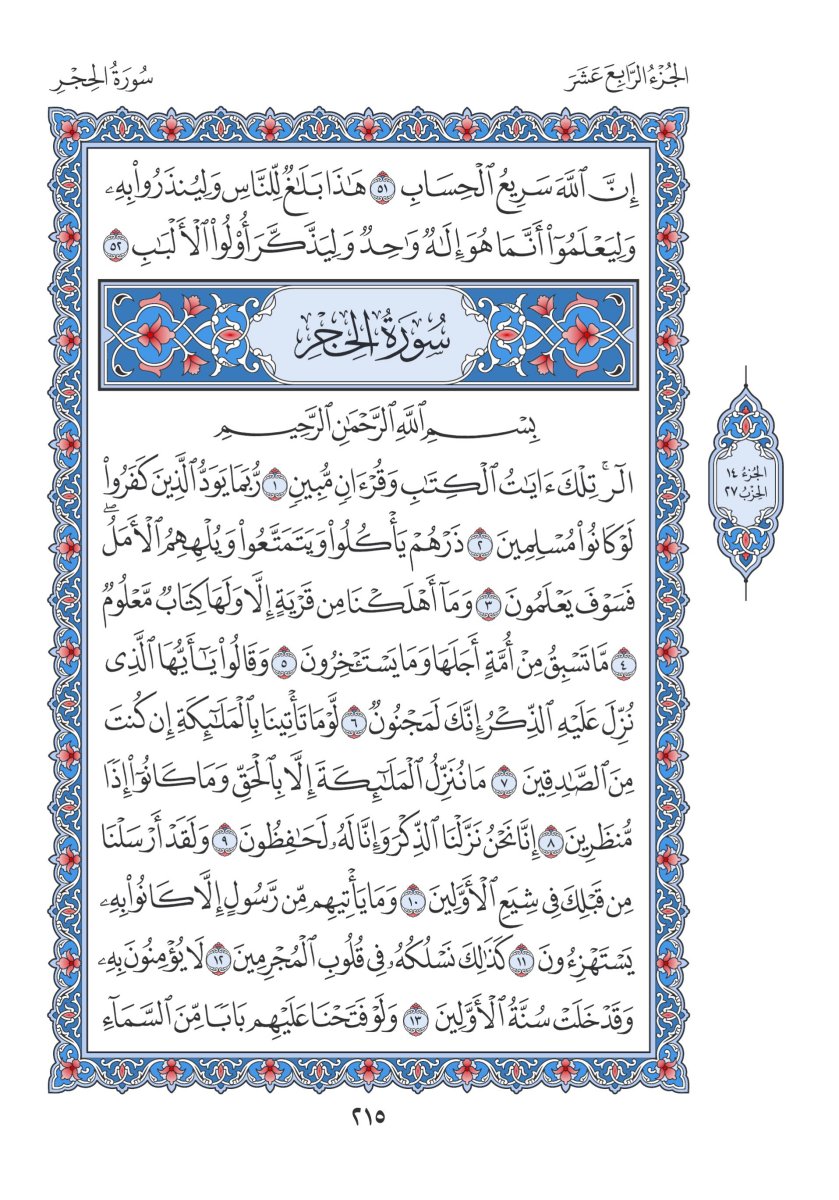 الجُزْءُ الرَّابِعَ عَشَرَ
سُورَةُ الحِجْرِ
إِنَّ ٱللَّهَ سَرِيعُ ٱلْحِسَابِ ٥١ هَٰذَا بَلَٰغٌ لِّلنَّاسِ وَلِيُنذَرُوا۟ بِهِۦ
وَلِيَعْلَمُوٓا۟ أَنَّمَا هُوَ إِلَٰهٌ وَٰحِدٌ وَلِيَذَّكَّرَ أُو۟لُوا۟ ٱلْأَلْبَٰبِ ٥٢
سُورَةُ الحِجْرِ
بِسْمِ ٱللَّهِ ٱلرَّحْمَٰنِ ٱلرَّحِيمِ
الٓر ۚ تِلْكَ ءَايَٰتُ ٱلْكِتَٰبِ وَقُرْءَانٍ مُّبِينٍ ١ رُّبَمَا يَوَدُّ ٱلَّذِينَ كَفَرُوا۟
لَوْ كَانُوا۟ مُسْلِمِينَ ٢ ذَرْهُمْ يَأْكُلُوا۟ وَيَتَمَتَّعُوا۟ وَيُلْهِهِمُ ٱلْأَمَلُ ۖ
فَسَوْفَ يَعْلَمُونَ ٣ وَمَآ أَهْلَكْنَا مِن قَرْيَةٍ إِلَّا وَلَهَا كِتَابٌ مَّعْلُومٌ
٤ مَّا تَسْبِقُ مِنْ أُمَّةٍ أَجَلَهَا وَمَا يَسْتَـْٔخِرُونَ ٥ وَقَالُوا۟ يَٰٓأَيُّهَا ٱلَّذِى
نُزِّلَ عَلَيْهِ ٱلذِّكْرُ إِنَّكَ لَمَجْنُونٌ ٦ لَّوْ مَا تَأْتِينَا بِٱلْمَلَٰٓئِكَةِ إِن كُنتَ
مِنَ ٱلصَّٰدِقِينَ ٧ مَا نُنَزِّلُ ٱلْمَلَٰٓئِكَةَ إِلَّا بِٱلْحَقِّ وَمَا كَانُوٓا۟ إِذًا
مُّنظَرِينَ ٨ إِنَّا نَحْنُ نَزَّلْنَا ٱلذِّكْرَ وَإِنَّا لَهُۥ لَحَٰفِظُونَ ٩ وَلَقَدْ أَرْسَلْنَا
مِن قَبْلِكَ فِى شِيَعِ ٱلْأَوَّلِينَ ١٠ وَمَا يَأْتِيهِم مِّن رَّسُولٍ إِلَّا كَانُوا۟ بِهِۦ
يَسْتَهْزِءُونَ ١١ كَذَٰلِكَ نَسْلُكُهُۥ فِى قُلُوبِ ٱلْمُجْرِمِينَ ١٢ لَا يُؤْمِنُونَ بِهِۦ
وَقَدْ خَلَتْ سُنَّةُ ٱلْأَوَّلِينَ ١٣ وَلَوْ فَتَحْنَا عَلَيْهِم بَابًا مِّنَ ٱلسَّمَآءِ
الجُزءُ ١٤
الحِزْبُ ٢٧
٢١٥